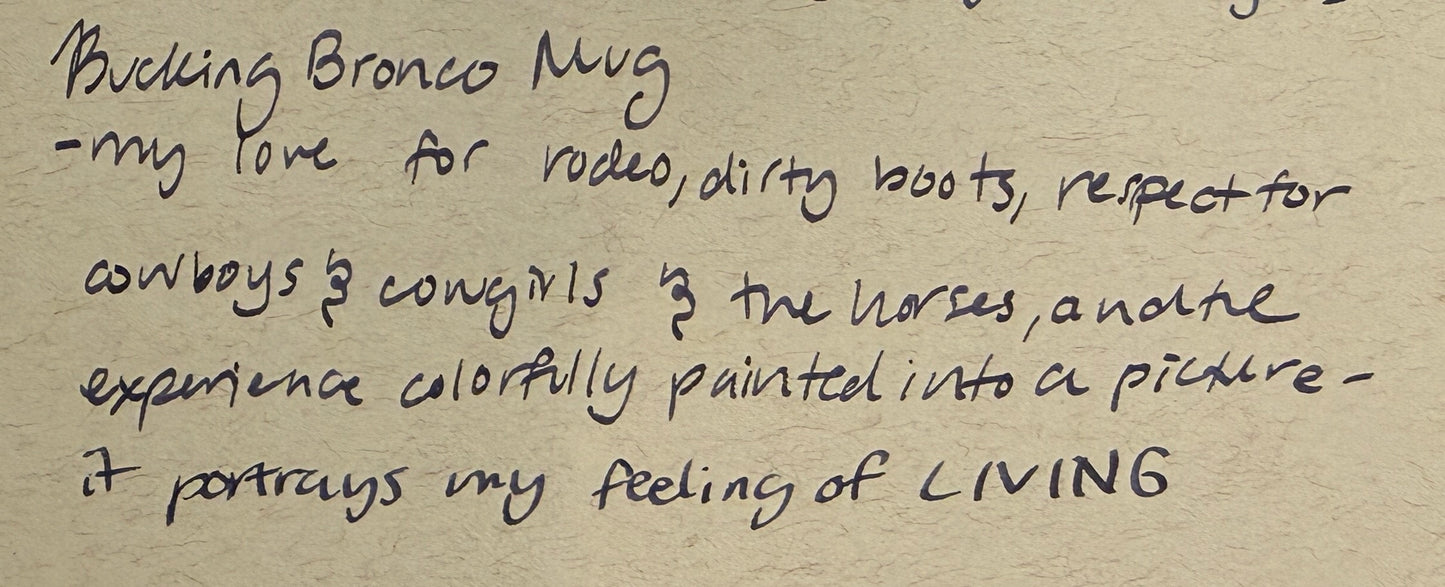 Bucking Bronco Mug
-my love for rodeo, dirty boots, respect for
cowboys & cowgirls & the horses, and the
experience colorfully painted into a picture-
it portrays my feeling of LIVING